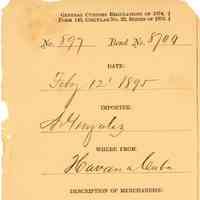 General Customs Regulations of 1874,
Form 140, Circular No. 22, Series of 1875.
No. 897 Bond No. 8709
DATE:
Feby 12' 1895
IMPORTER:
A Gonzalez
WHERE FROM:
Havana Cuba
DESCRIPTION OF MERCHANDISE: